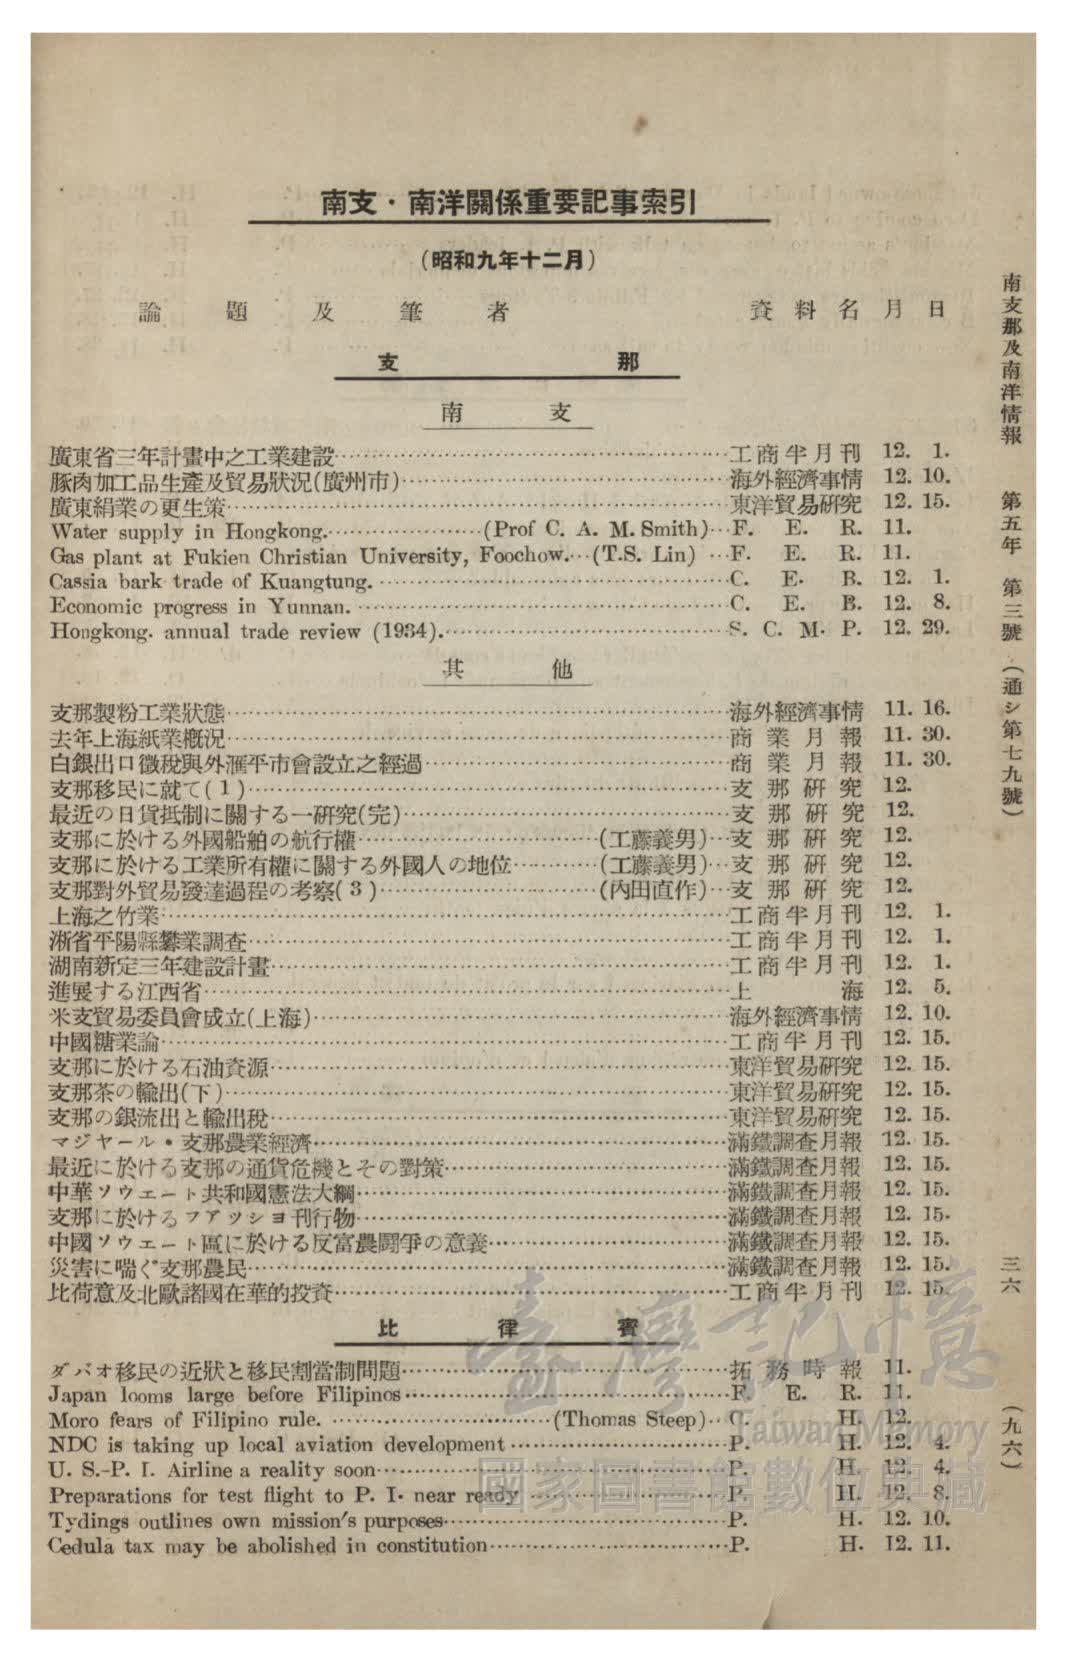 南支・南洋關係重要記事索引
(昭和九年十二月)
論題及筆者 資料名 月 日
支那
南支
廣東省三年計畫中之工業建設 工商半月刊 12. 1.
豚肉加工品生產及貿易狀況(廣州市) 海外經濟事情 12. 10.
廣東絹業の更生策 東洋貿易研究 12. 15.
Water supply in Hongkong. (Prof C. A. M. Smith) F. E. R. 11.
Gas plant at Fukien Christian University, Foochow. (T.S. Lin) F. E. R. 11.
Cassia bark trade of Kuangtung. C. E. B. 12. 1.
Economic progress in Yunnan. C. E. B. 12. 8.
Hongkong. annual trade review (1934). S. C. M. P. 12. 29.
其他
支那製粉工業狀態 海外經濟事情 11. 16.
去年上海紙業概況 商業月報 11. 30.
白銀出口徵稅與外滙平市會設立之經過 商業月報 11. 30.
支那移民に就て(1) 支那研究 12.
最近の日貨抵制に關する一研究(完) 支那研究 12.
支那に於ける外國船舶の航行權 (工藤義男) 支那研究 12.
支那に於ける工業所有權に關する外國人の地位 (工藤義男) 支那研究 12.
支那對外貿易發達過程の考察(3) (內田直作) 支那研究 12.
上海之竹業 工商半月刊 12. 1.
浙省平陽縣礬業調查 工商半月刊 12. 1.
湖南新定三年建設計畫 工商半月刊 12. 1.
進展する江西省 上海 12. 5.
米支貿易委員會成立(上海) 海外經濟事情 12. 10.
中國糖業論 工商半月刊 12. 15.
支那に於ける石油資源 東洋貿易研究 12. 15.
支那茶の輸出(下) 東洋貿易研究 12. 15.
支那の銀流出と輸出稅 東洋貿易研究 12. 15.
マジヤール・支那農業經濟 滿鐵調查月報 12. 15.
最近に於ける支那の通貨危機とその對策 滿鐵調查月報 12. 15.
中華ソウエート共和國憲法大綱 滿鐵調查月報 12. 15.
支那に於けるフアツシヨ刊行物 滿鐵調查月報 12. 15.
中國ソウエート區に於ける反富農鬪爭の意義 滿鐵調查月報 12. 15.
災害に喘ぐ支那農民 滿鐵調查月報 12. 15.
比荷意及北歐諸國在華的投資 工商半月刊 12. 15.
比律賓
ダバオ移民の近狀と移民割當制問題 拓務時報 11.
Japan looms large before Filipinos F. E. R. 11.
Moro fears of Filipino rule. (Thomas Steep) C. H. 12.
NDC is taking up local aviation development P. H. 12. 4.
U. S.-P. I. Airline a reality soon P. H. 12. 4.
Preparations for test flight to P. I. near ready P. H. 12. 8.
Tydings outlines own mission's purposes P. H. 12. 10.
Cedula tax may be abolished in constitution P. H. 12. 11.
南支那及南洋情報 第五年 第三號 (通シ第七九號) 三六 (九六)
臺灣記憶
Taiwan Memory
國家圖書館數位典藏